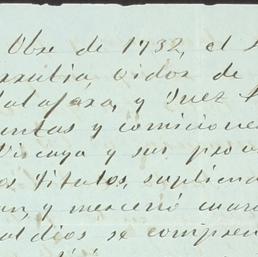 Obre de 1732, el
rrutia, oidor de
dalajara, y Juez
entas y comiciones
Viscaya y sus prov
os titulos, suplican
an, y mercenó
aldios se compren